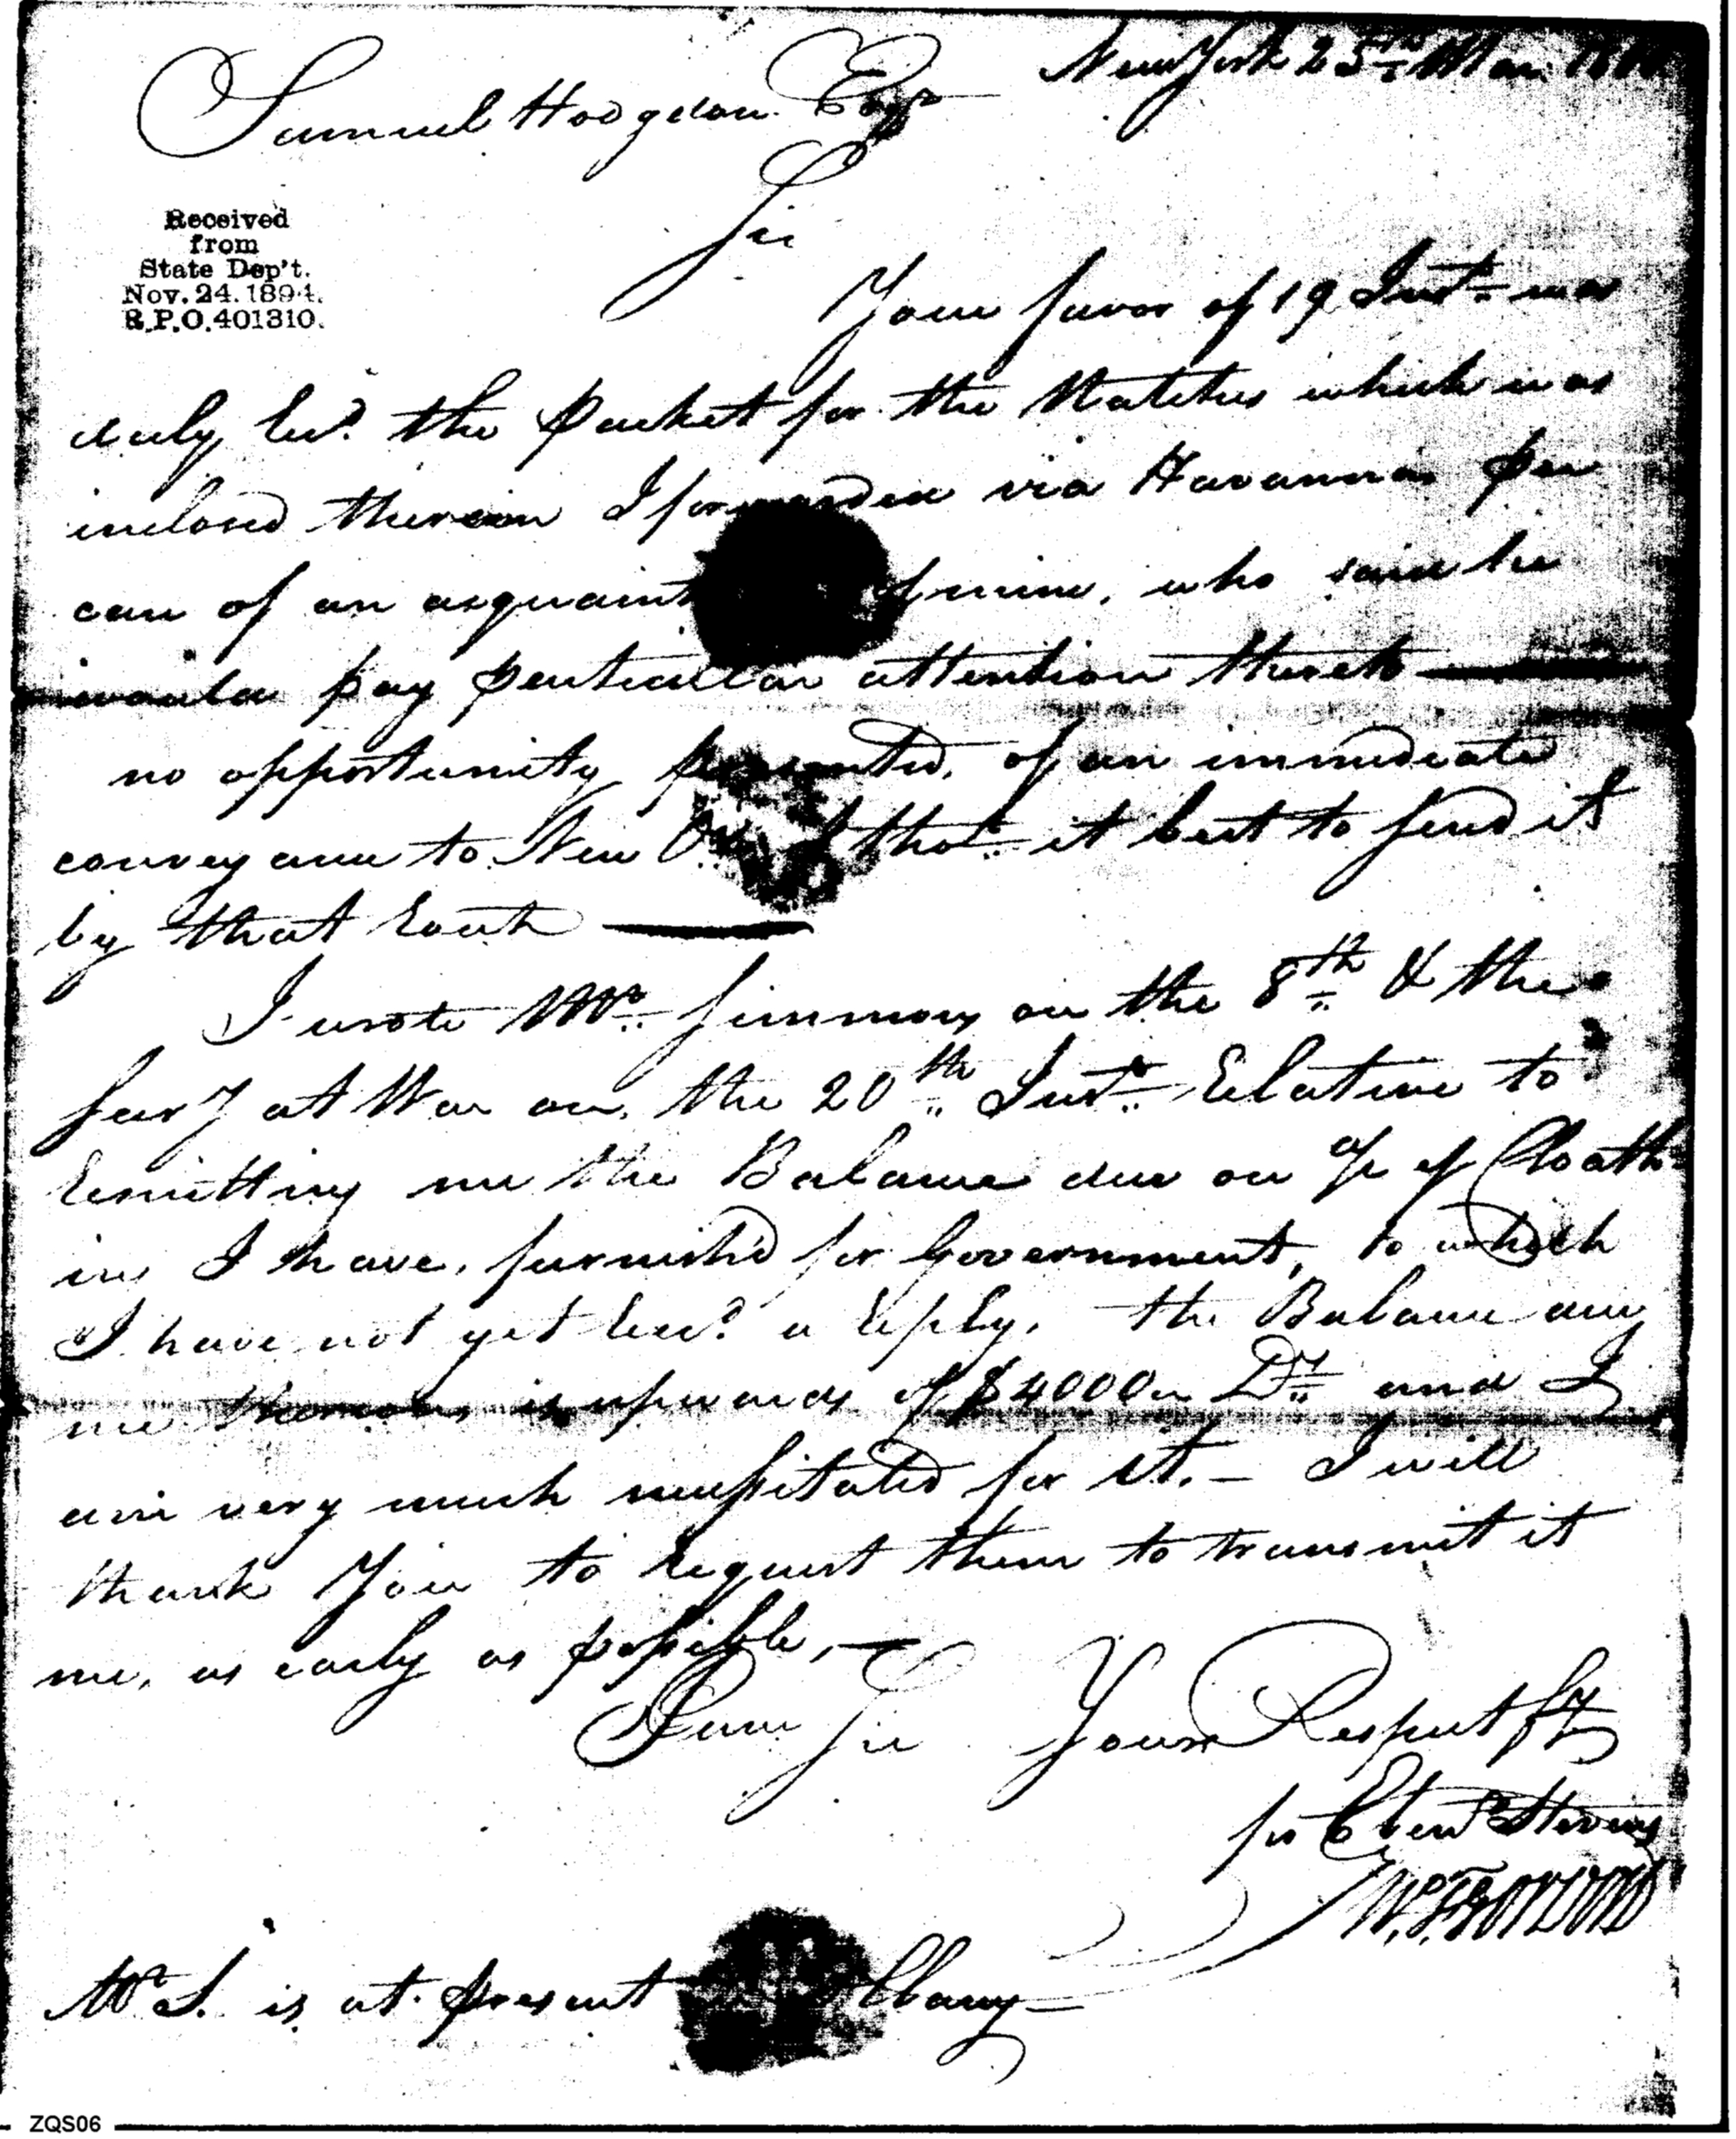 New York 25th Mar. 1800
Samuel Hodgdon Esqr
Sir
Received
from
State Dep't.
Nov. 24. 1894.
R.P.O. 401310.
Your favor of 19 Inst. was
duly Recd. the Packet for the Natches which was
inclosed therein I forwarded via Havanna per
care of an acquaint of mine, who said he
would pay particular attention thereto
no opportunity presented, of an immediate
conveyance to New thot. it best to send it
by that Rout
I wrote Mr. Simmons on the 8th & the
Secy at War on the 20th Inst. Relative to
Remitting me the Balance due on a/c of Cloath
ing I have, furnish'd for Government, to which
I have not yet Recd. a Reply. the Balance due
me thereon is upwards of $4000 Drs and I
am very much necessitated for it. — I will
thank You to Request them to transmit it
me, as early as possible, —
I am Sir Yours Respectfy
for Eben Stevens
Mr S. is at present Albany —
ZQS06